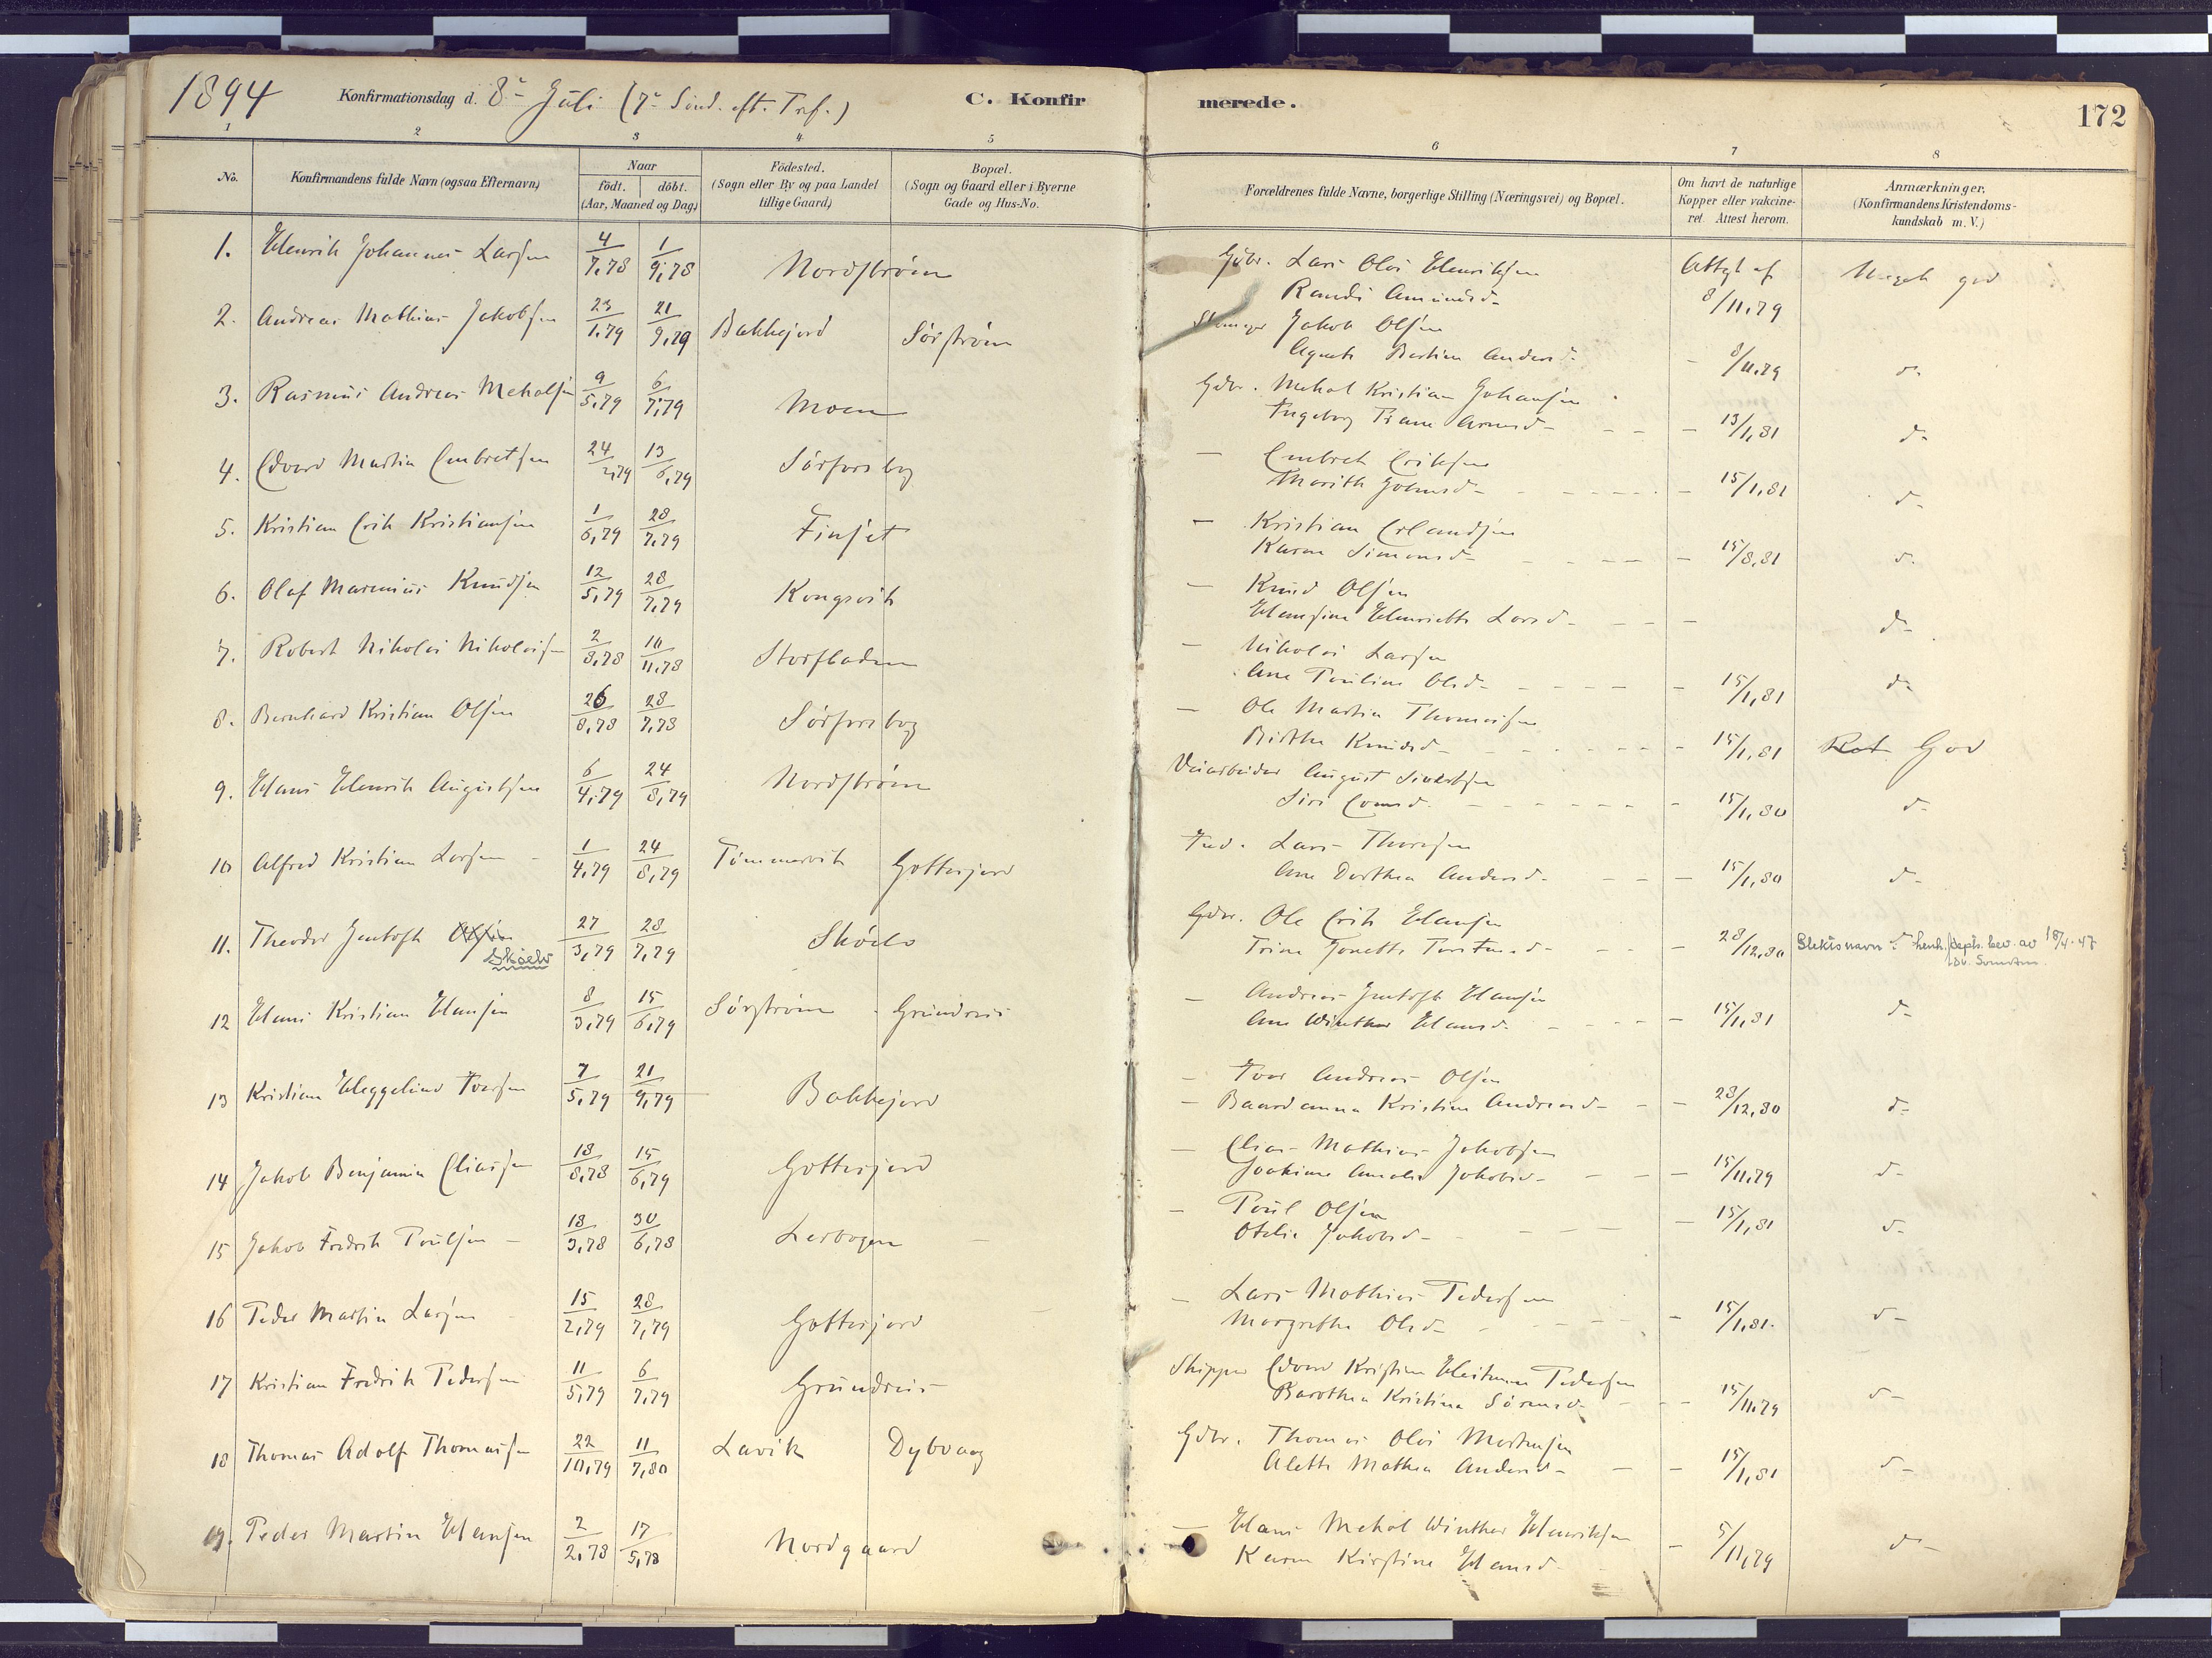 1894 Konfirmationsdag d. 8- Juli (7- Sønd. eft. Tref.) C. Konfirmerede. 172
1 2 3 4 5 6 7 8
No. Konfirmandens fulde Navn (ogsaa Efternavn) Naar födt. döbt. (Aar, Maaned og Dag) Födested. (Sogn eller By og paa Landet tillige Gaard) Bopæl. (Sogn og Gaard eller i Byerne Gade og Hus-No. Forældrenes fulde Navne, borgerlige Stilling (Næringsvei) og Bopæl. Om havt de naturlige Kopper eller vakcineret. Attest herom. Anmærkninger. (Konfirmandens Kristendomskundskab m. V.)
1. Henrik Johannes Larsen 4/7,78 1/9,78 Nordstrøm Gdbr. Lars Olai Henriksen
Randi Amundsd- 8/11,79 Meget god
2. Andreas Mathias Jakobsen 23/1,79 21/9,79 Bakkejord Sørstrøm Jakob Olsen
Agnete Bertine Andersd- - 8/11,79 d-
3. Rasmus Andreas Mekalsen 9/5,79 6/7,79 Moen Gdbr. Mekal Kristian Johansen
Ingeborg Arnesd- - 13/1,81 d-
4. Edvard Martin Embretsen 24/2,79 13/6,79 Sørforsbog - Embret Eriksen
Marith Johnsd- - 15/1,81 d-
5. Kristian Erik Kristiansen 1/6,79 28/7,79 Finset - Kristian Erlandsen
Karen Simonsd- - 15/8,81 d-
6. Olaf Marenius Knudsen 12/5,79 28/7,79 Kongsvik - Knud Olsen
Hansine Henriette Larsd- - d-
7. Robert Nikolai Nikolaisen 2/8,78 10/11,78 Storfladen - Nikolai Larsen
Ane Pauline Olsd- - 15/1,81 d-
8. Bernhard Kristian Olsen 26/8,78 28/7,78 Sørforsbog - Ole Martin Thomassen
Birthe Knudsd- - 15/1,81 God
9. Hans Henrik Augustsen 6/4,79 24/8,79 Nordstrøm Veiarbeider August Sivertsen
Siri - 15/1,80 d-
10 Alfred Kristian Larsen - 1/4,79 24/8,79 Tømmervik Gottesjord Ind. Lars Thoresen
Ane Dorthea Andersd- - 15/1,80 d-
11. Theodor Jentoft Olsen 27/3,79 28/7,79 Sköelv Gdbr. Ole Erik Hansen
Skoelv
Trine Jonette Torstensd- - 28/12,80 Slektsnavn: henh. dept. bev. av 18/4-47
12 Hans Kristian Hansen 8/3,79 15/6,79 Sørstrøm - Grundreis - Andreas Jentoft Hansen
Ane Winther Hansd- - 15/1,81 d-
13 Kristian Heggelund Ivarsen 7/5,79 21/9,79 Bakkejord - Ivar Andreas Olsen
- Baardanna Kristine Andreasd- - 28/12,80 d-
14 Jakob Benjamin Eliassen 18/8,78 15/6,79 Gottesjord - Elias Mathias Jakobsen
Joakime Amalie Jakobsd- - 15/11,79 d-
15 Jakob Fredrik Poulsen - 18/3,78 30/6,78 Lerbogen - - Poul Olsen
Otelie Jakobsd- - 15/1,81 d-
16 Peder Martin Larsen 15/2,79 28/7,79 Gottesjord - Lars Mathias Pedersen
Margrethe Olsd- - 15/1,81. d-
17 Kristian Fredrik Pedersen 11/5,79 6/7,79 Grundreis Skipper Edvard Kristian Pedersen
Barothea Kristina Sørensd- - 15/11,79 d-
18 Thomas Adolf Thomassen 22/10,79 11/7,80 Lavik Dybvaag Gdbr. Thomas Olai Mortensen
Alette Mathea Andersd- - 15/1,81 d-
19. Peder Martin Hansen 2/2,78 17/5,78 Nordgaard - Hans Mekal Winther Henriksen
Karen Kirstine Hansd- - 5/11,79 d-